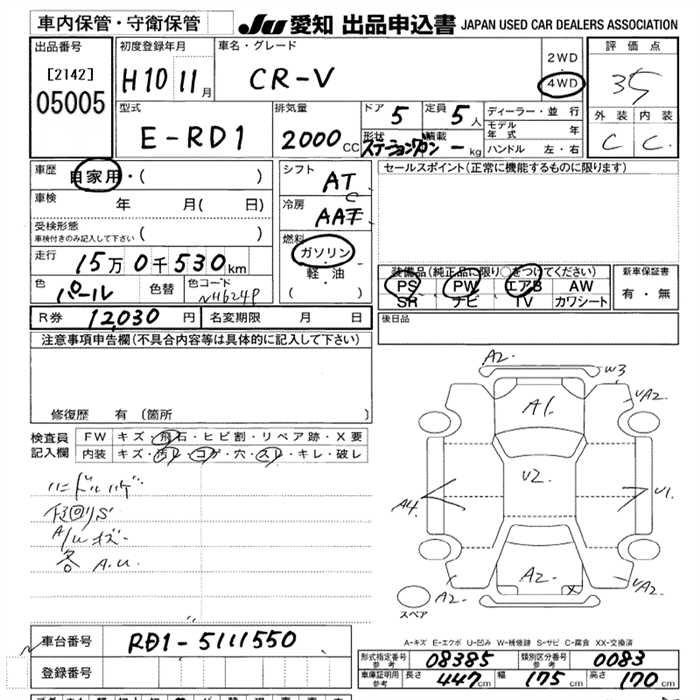 車内保管・守衛保管
JU 愛知 出品申込書 JAPAN USED CAR DEALERS ASSOCIATION
出品番号
[2142]
05005
初度登録年月
H10 11月
車名・グレード
CR-V
2WD
4WD
評価点
3.5
外装 内装
C C
型式
E-RD1
排気量
2000CC
ドア 5
定員 5人
形状 ステーションワゴン
積載 - kg
ディーラー・並行
モデル年式 年
ハンドル 左・右
車歴
自家用・( )
車検 年 月( 日)
受検形態
車検付きのみ記入して下さい ( )
走行
15万0千530km
色 パール
色替
色コード NH624P
シフト AT
冷房 AAC
燃料
ガソリン
軽油
( )
セールスポイント(正常に機能するものに限ります)
装備品(純正品に限り○をつけてください)
PS PW エアB AW
SR ナビ TV カワシート
新車保証書
有・無
後日品
R券 12,030円
名変期限 月 日
注意事項申告欄(不具合内容等は具体的に記入して下さい)
修復歴 有 (箇所
検査員記入欄
FW キズ・飛石・ヒビ割・リペア跡・X要
内装 キズ・汚レ・コゲ・穴・スレ・キレ・破レ
ハンドルハゲ
下回りS
A/Uキズ
各A.U.
A2
W3
UA2
A1
U2
A4
U1
A2
A2
UA2
X
スペア
A-キズ E-エクボ U-凹み W-補修跡 S-サビ C-腐食 XX-交換済
車台番号 RD1-5111550
登録番号
形式指定番号 参考 08385
類別区分番号 参考 0083
車庫証明用 参考 長さ 447cm 幅 175cm 高さ 170cm